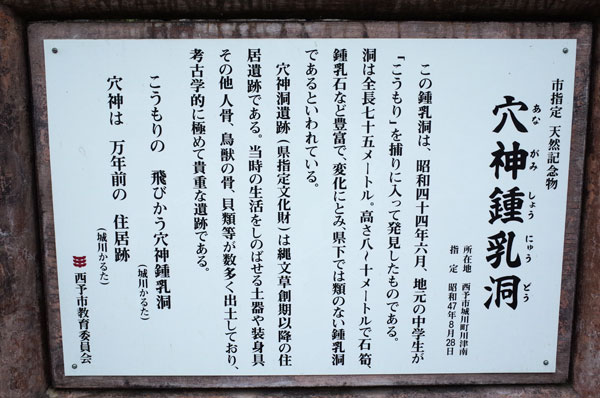 市指定 天然記念物
穴神鍾乳洞
あな がみ しょう にゅう どう
所在地 西予市城川町川津南
指 定 昭和47年8月28日
この鍾乳洞は、昭和四十四年六月、地元の中学生が
「こうもり」を捕りに入って発見したものである。
洞は全長七十五メートル。高さ八〜十メートルで石筍、
鍾乳石など豊富で、変化にとみ、県下では類のない鍾乳洞
であるといわれている。
穴神洞遺跡（県指定文化財）は縄文草創期以降の住
居遺跡である。当時の生活をしのばせる土器や装身具
その他人骨、鳥獣の骨、貝類等が数多く出土しており、
考古学的に極めて貴重な遺跡である。
こうもりの 飛びかう穴神鍾乳洞
（城川かるた）
穴神は 万年前の 住居跡
（城川かるた）
西予市教育委員会